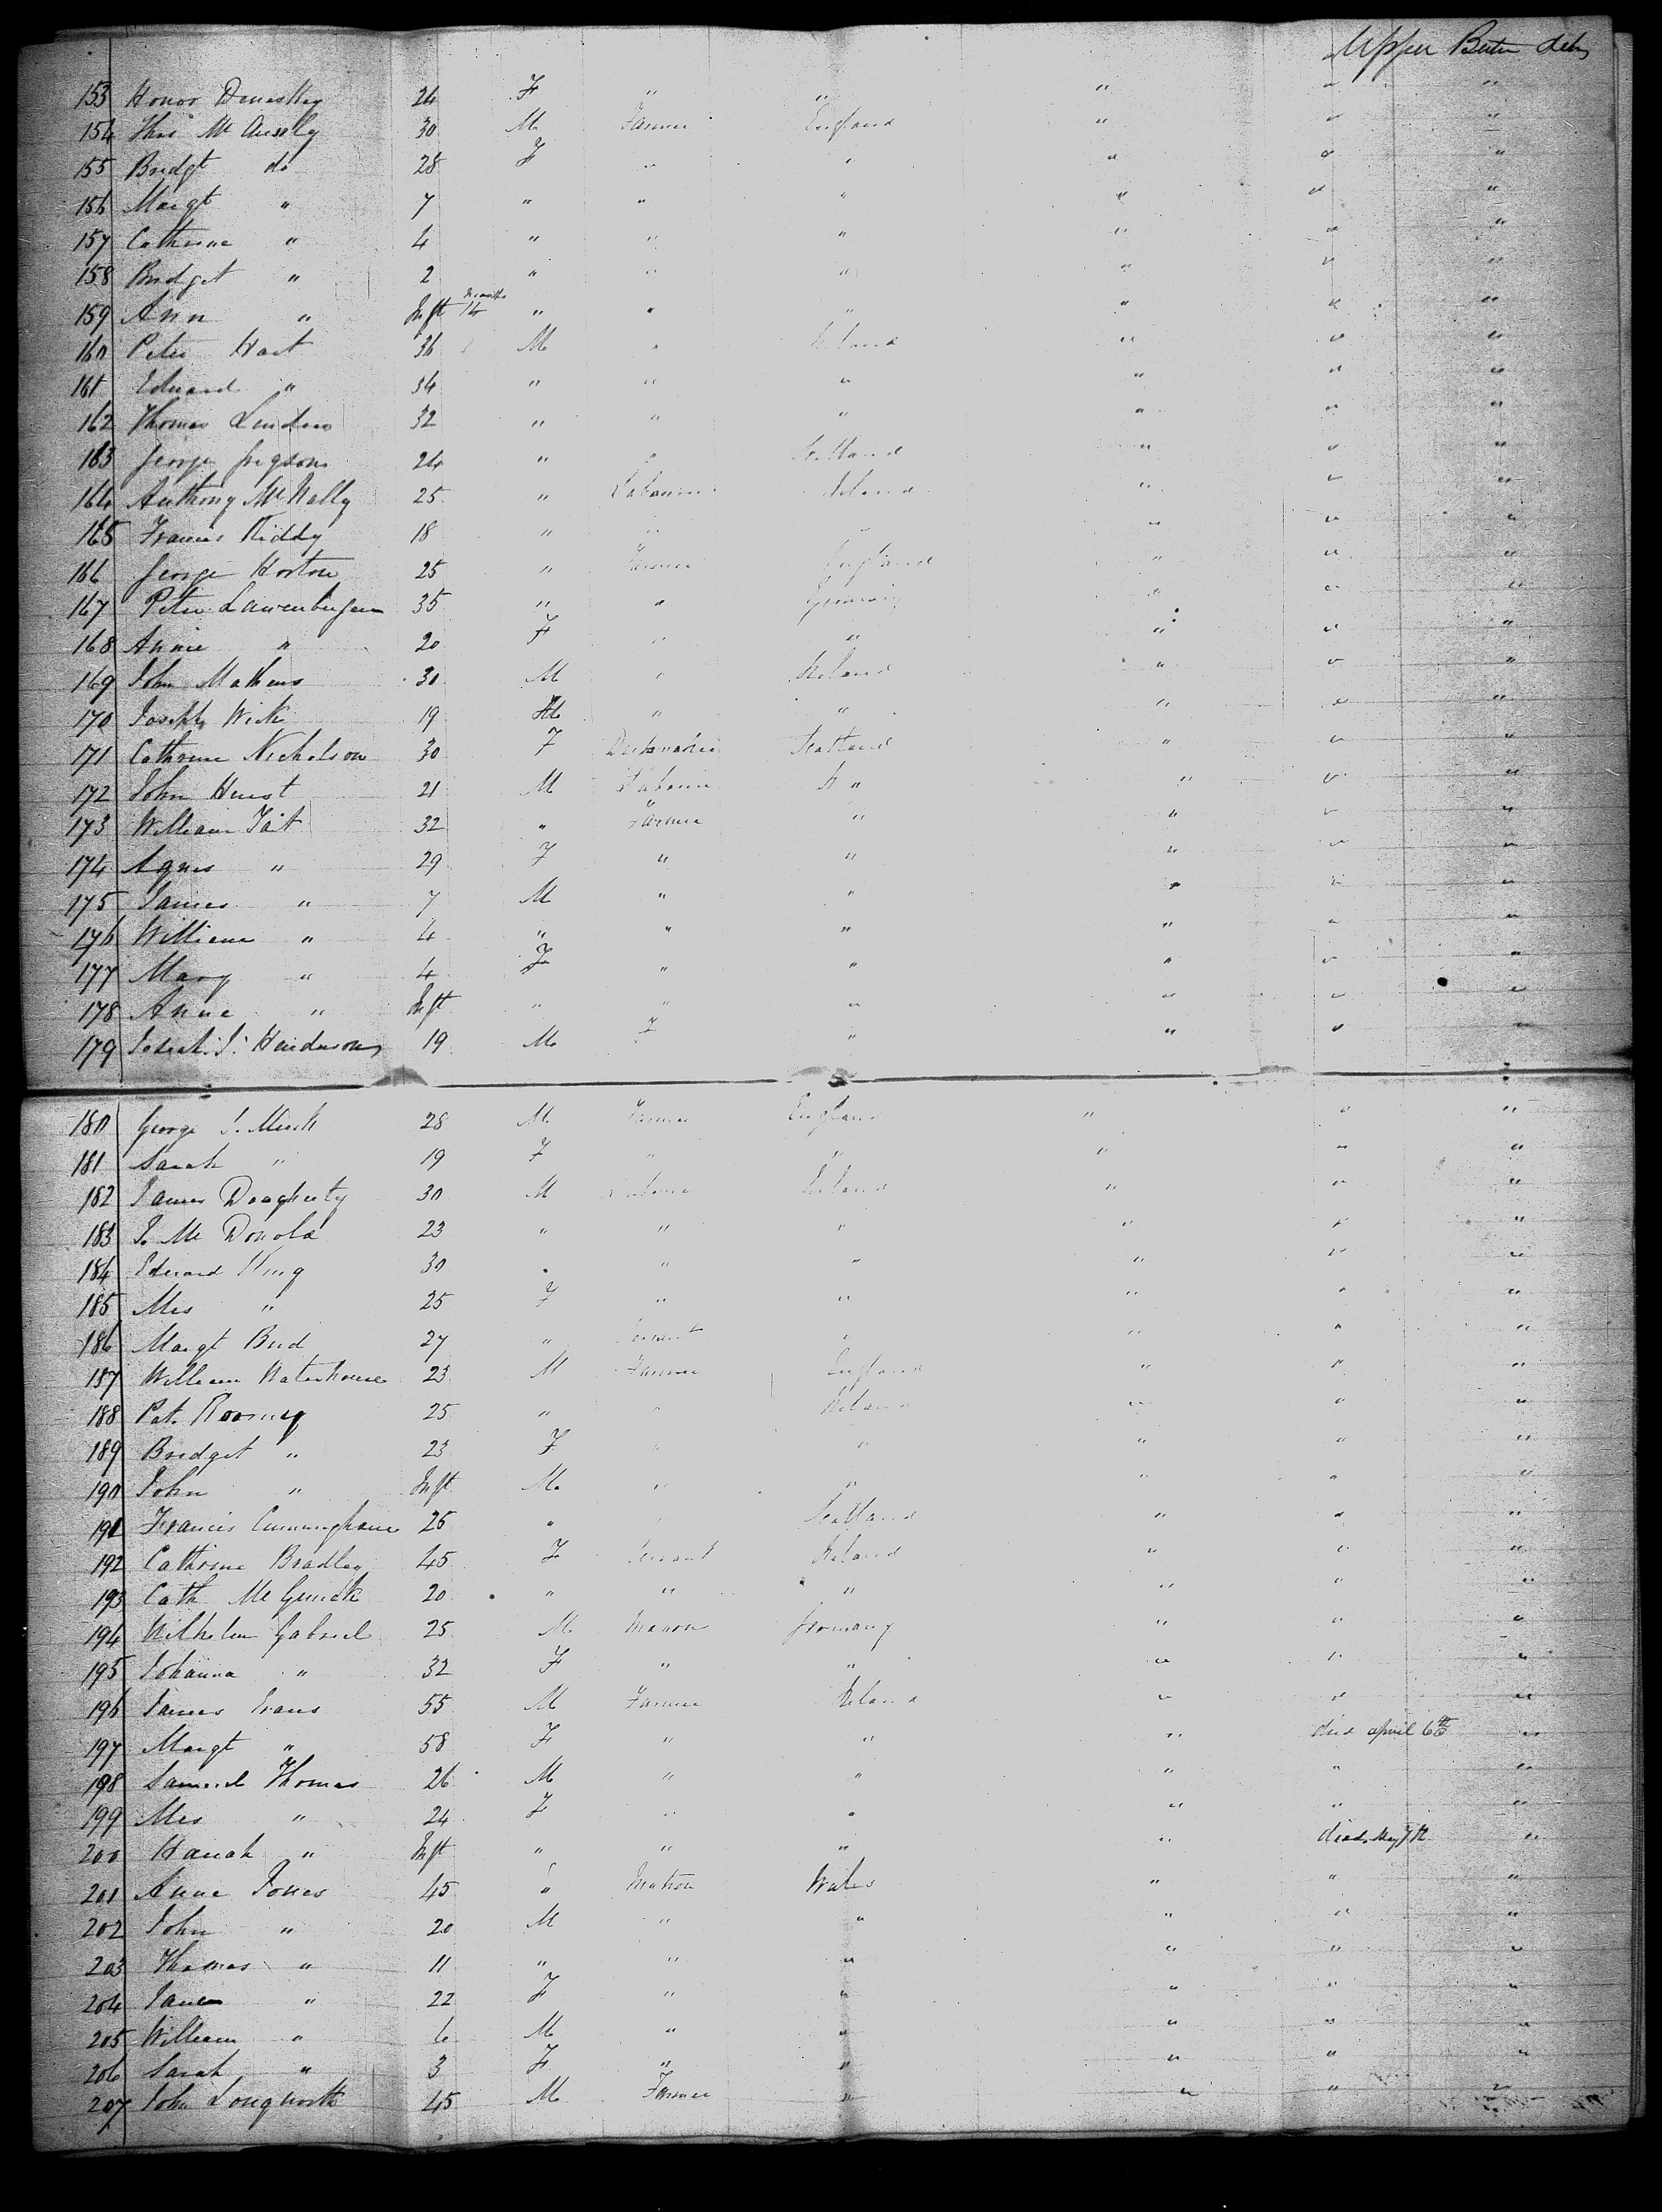 Upper Betn deks
153 Honor 24 F " " " " "
154 Thos Mc Anally 30 M Farmer England " " "
155 Bridgt do 28 F " " " " "
156 Margt " 7 " " " " " "
157 Cathrine " 4 " " " " " "
158 Bridget " 2 " " " " " "
159 Ann " Inft months 14 " " " " " "
160 Peter Hart 36 M " Ireland " " "
161 Edward " 34 " " " " " "
162 Thomas 32 " " " " " "
163 George 24 " " Scotland " " "
164 Anthony Mc Nally 25 " Labourer Ireland " " "
165 Francis Kiddy 18 " " " " " "
166 George Horton 25 " Farmer England " " "
167 Peter 35 " " Germany " " "
168 Annie " 20 F " " " " "
169 John Mathews 30 M " Ireland " " "
170 Joseph Wick 19 M " " " " "
171 Cathrine Nicholson 30 F Dressmaker Scotland " " "
172 John Hurst 21 M Labourer " " " "
173 William Tait 32 " Farmer " " " "
174 Agnes " 29 F " " " " "
175 James " 7 M " " " " "
176 William " 4 " " " " " "
177 Mary " 4 F " " " " "
178 Anne " Inft " " " " " "
179 J. Henderson 19 M " " " " "
180 George J. 28 M Farmer England " " "
181 Sarah " 19 F " " " " "
182 James Dougherty 30 M Labourer Ireland " " "
183 J. Mc Donold 23 " " " " " "
184 Edward King 30 " " " " " "
185 Mrs " 25 F " " " " "
186 Margt Bird 27 " Servant " " " "
187 William Waterhouse 23 M Farmer England " " "
188 Pat. Rooney 25 " " Ireland " " "
189 Bridget " 23 F " " " " "
190 John " Inft M " " " " "
191 Francis Cunningham 25 " " Scotland " " "
192 Cathrine Bradley 45 F Servant Ireland " " "
193 Cath Mc 20 " " " " " "
194 Wilhelm Gabriel 25 M Mason Germany " " "
195 Johanna " 32 F " " " " "
196 James Evans 55 M Farmer Ireland " " "
197 Margt " 58 F " " " died april 6th "
198 Samuel Thomas 26 M " " " " "
199 Mrs " 24 F " " " " "
200 Hanah " Inft " " " " died May 7th "
201 Anne Jones 45 " Matron Wales " " "
202 John " 20 M " " " " "
203 Thomas " 11 " " " " " "
204 Jane " 22 F " " " " "
205 William " 6 M " " " " "
206 Sarah " 3 F " " " " "
207 John Longworth 45 M Farmer " " " "